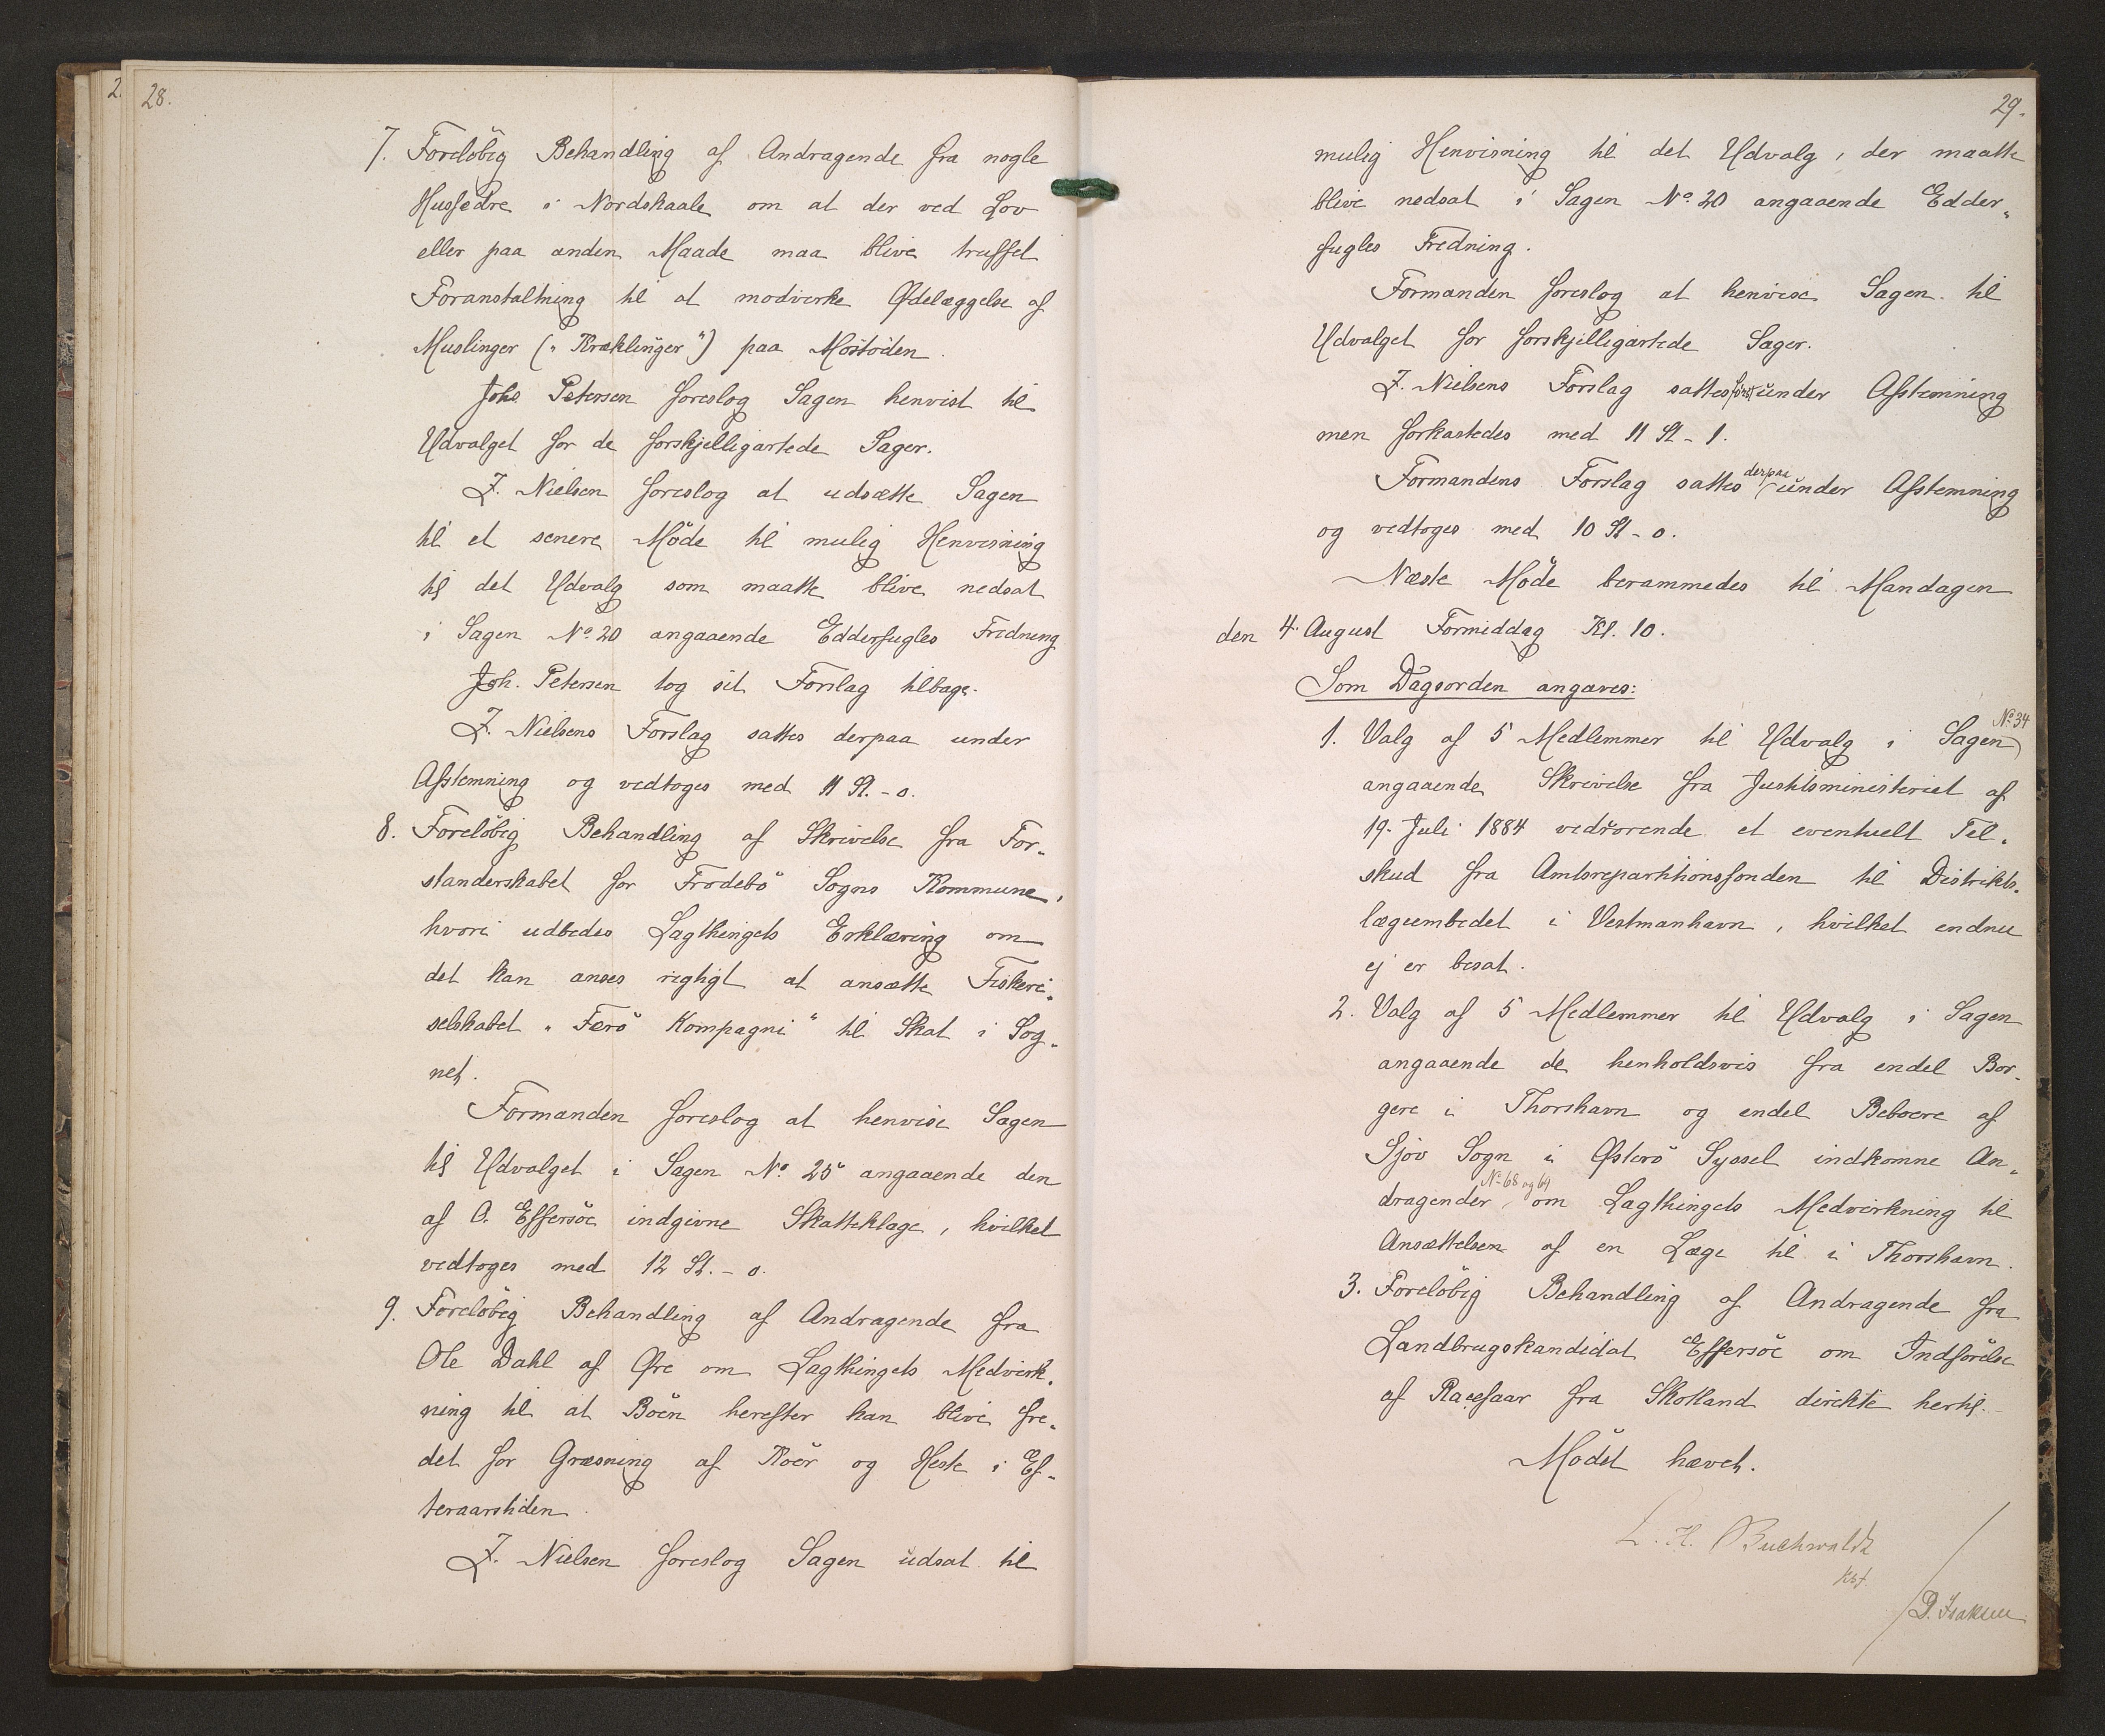 2.
28.
7. Foreløbig Behandling af Andragende fra nogle
Husfedre i Nordskaale om at der ved Lov
eller paa anden Maade maa blive truffet
Foranstaltning til at modvirke Ødelæggelse af
Muslinger („Kræklinger“) paa
Johs Petersen foreslog Sagen henvist til
Udvalget for de forskjelligartede Sager.
Z. Nielsen foreslog at udsætte Sagen
til et senere Møde til mulig Henvisning
til det Udvalg som maatte blive nedsat
i Sagen No. 20 angaaende Edderfugles Fredning
Joh. Petersen tog sit Forslag tilbage.
Z. Nielsens Forslag sattes derpaa under
Afstemning og vedtoges med 11 St. - 0.
8. Foreløbig Behandling af Skrivelse fra For-
standerskabet for Frodebø Sogns Kommune,
hvori udbedes Lagthingets Erklæring om
det kan anses rigtigt at ansætte Fiskeri-
selskabet „Færø Kompagni“ til Skat i Sog-
net.
Formanden foreslog at henvise Sagen
til Udvalget i Sagen No. 25 angaaende den
af O. Effersöe indgivne Skatteklage, hvilket
vedtoges med 12 St. - 0.
9. Foreløbig Behandling af Andragende fra
Ole Dahl af Øre om Lagthingets Medvirk-
ning til at Böen herefter kan blive fre-
det for Græsning af Köer og Heste i Ef-
teraarstiden.
Z. Nielsen foreslog Sagen udsat til
29.
mulig Henvisning til det Udvalg, der maatte
blive nedsat i Sagen No. 20 angaaende Edder-
fugles Fredning.
Formanden foreslog at henvise Sagen til
Udvalget for forskjelligartede Sager.
Z. Nielsens Forslag sattes først under Afstemning
men forkastedes med 11 St - 1.
Formandens Forslag sattes derpaa under Afstemning
og vedtoges med 10 St - 0.
Næste Møde berammedes til Mandagen
den 4. August Formiddag Kl. 10.
Som Dagsorden angaves:
1. Valg af 5 Medlemmer til Udvalg i Sagen No. 34
angaaende Skrivelse fra Justitsministeriet af
19. Juli 1884 vedrørende et eventuelt Til-
skud fra Amtsrepartitionsfonden til Distrikts-
lægeembedet i Vestmanhavn, hvilket endnu
ej er besat.
2. Valg af 5 Medlemmer til Udvalg i Sagen
angaaende de henholdsvis fra endel Bor-
gere i Thorshavn og endel Beboere af
Sjöv Sogn i Østerö Syssel indkomne An-
dragender, No. 68 og 64 om Lagthingets Medvirkning til
Ansættelsen af en Læge til i Thorshavn.
3. Foreløbig Behandling af Andragende fra
Landbrugskandidat Effersöe om Indførelse
af Racefaar fra Skotland direkte hertil.
Mødet hævet.
L. H. Buchwaldt
kst
/ D. Isaksen